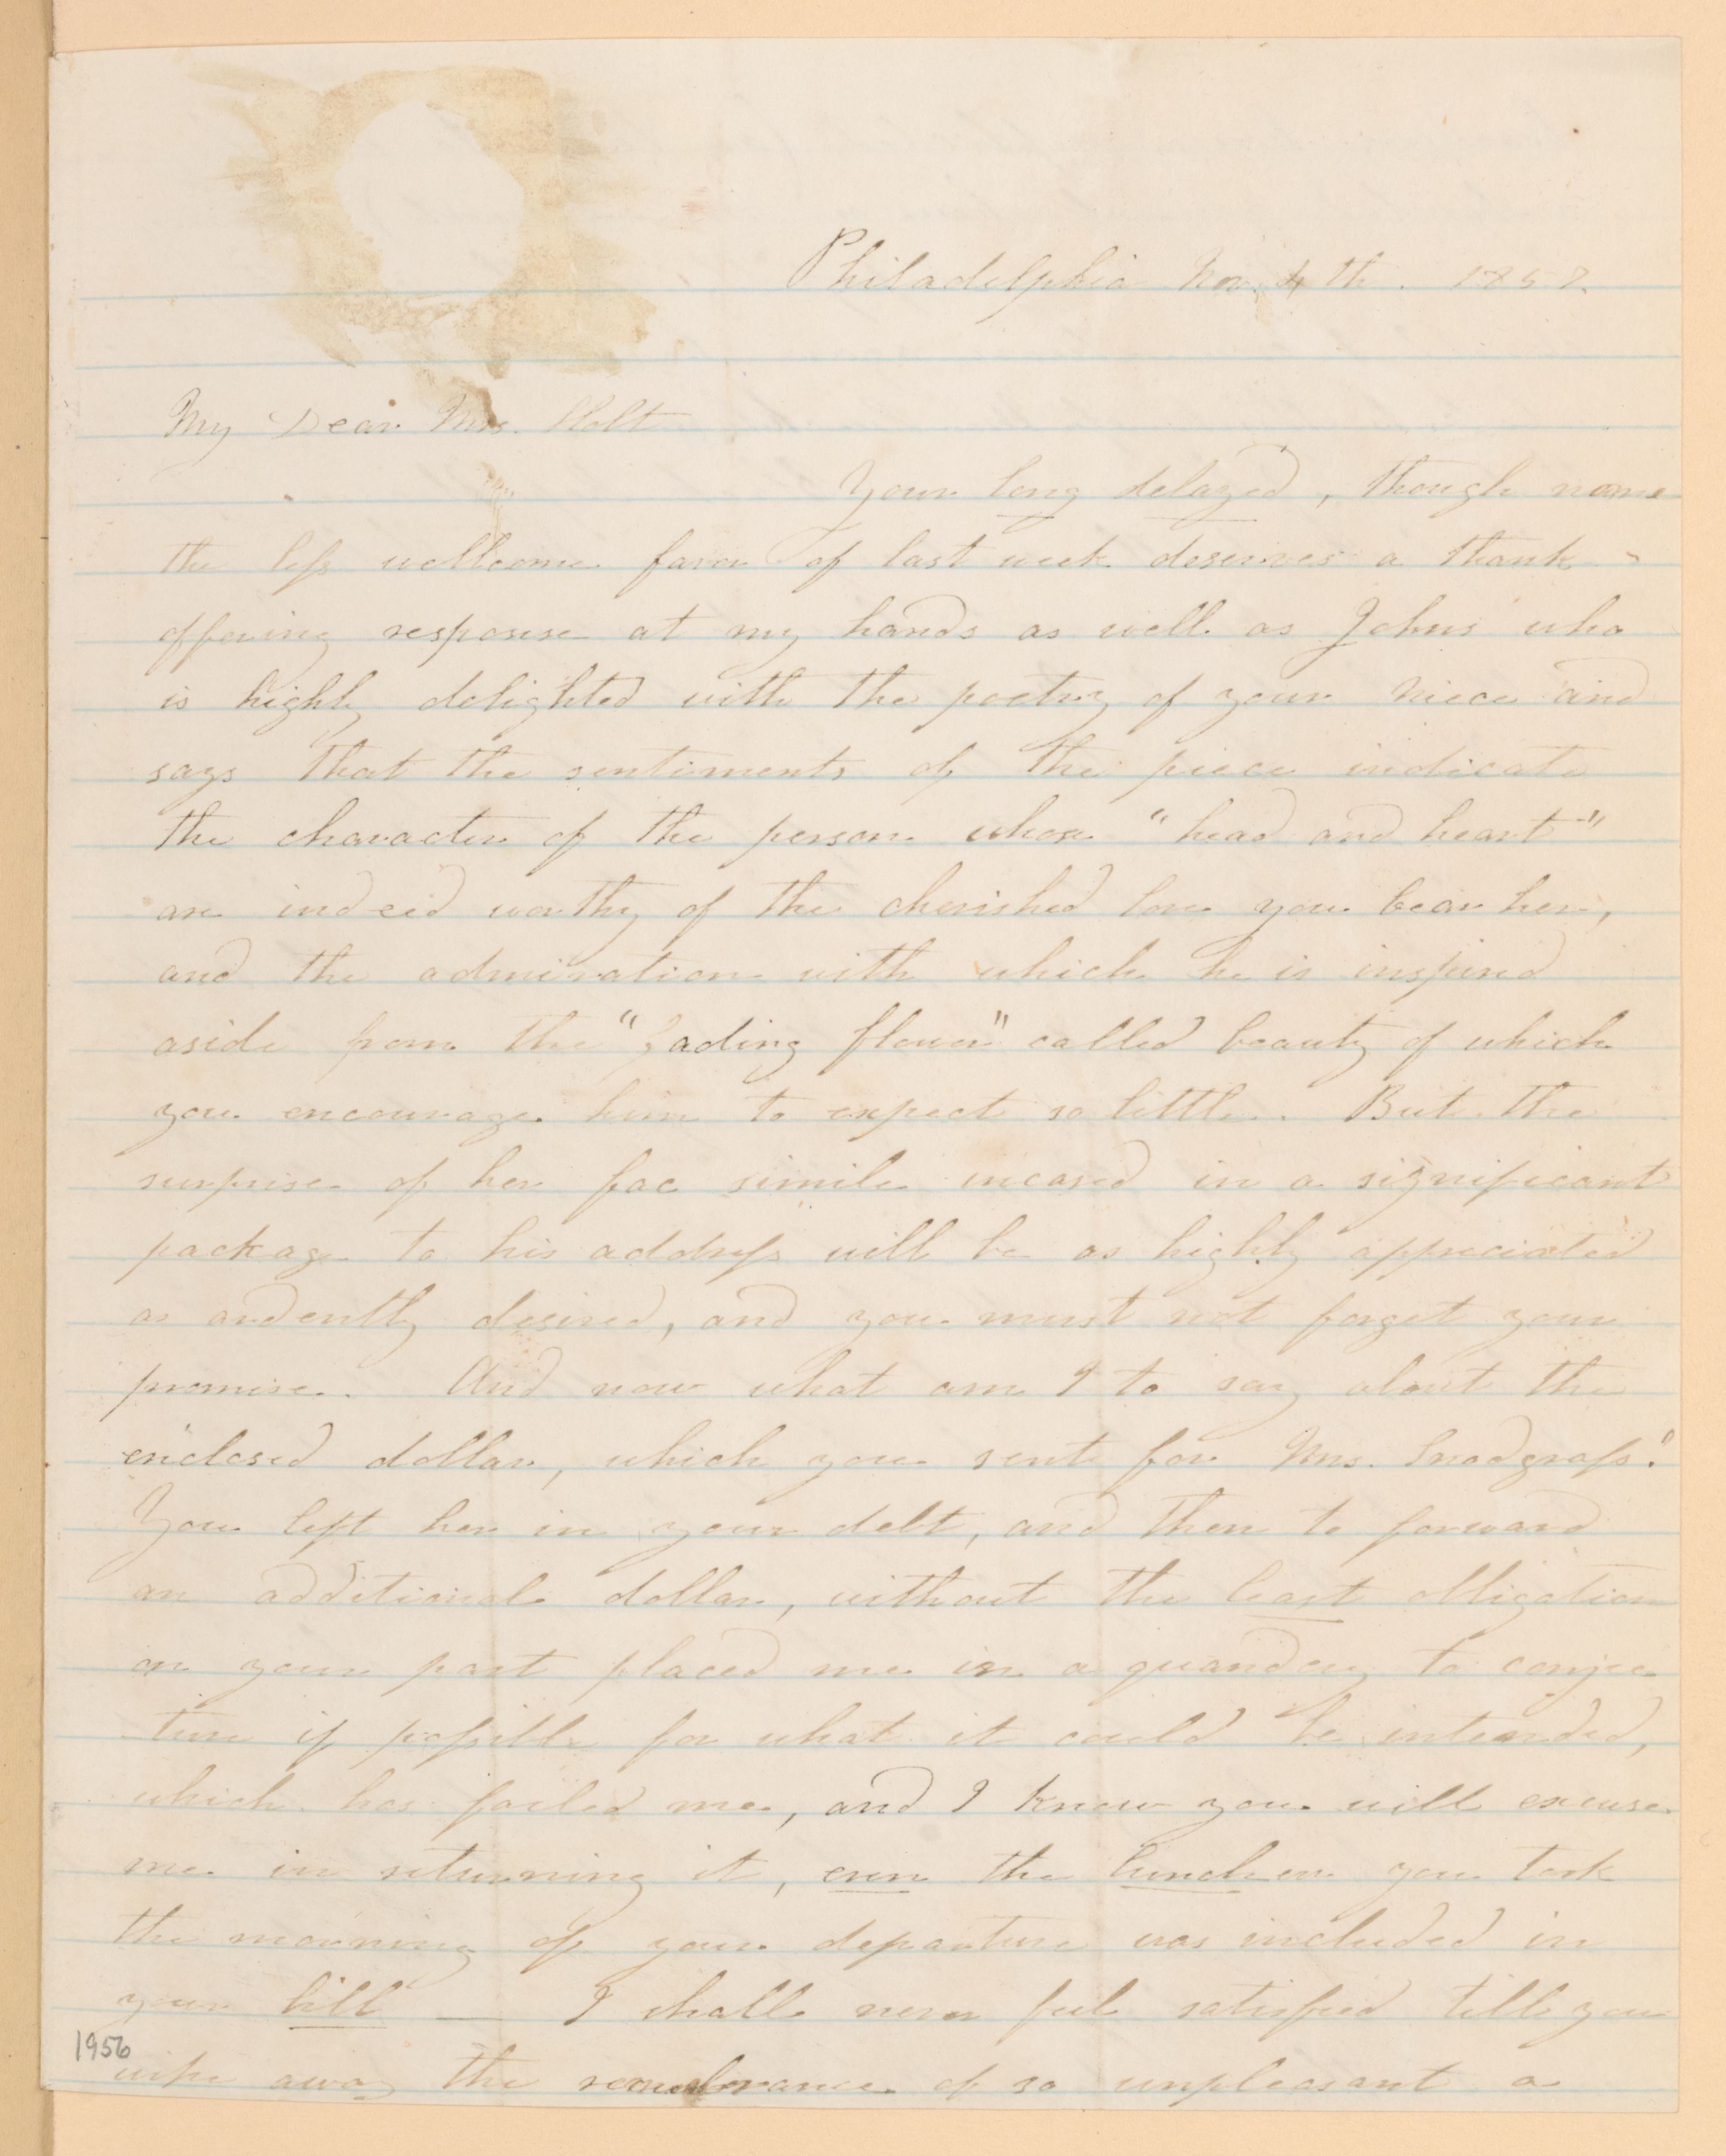 Philadelphia Nov. 4th. 1858.
My Dear Mrs. Holt
Your long delayed, though none
the less wellcome favor of last week deserves a thank
offering response at my hands as well as Johns who
is highly delighted with the poetry of your niece and
says that the sentiments of the piece indicate
the character of the person whose "head and heart"
are indeed worthy of the cherished love you bear her,
and the admiration with which he is inspired
aside from the "fading flower" called beauty of which
you encourage him to expect so little. But the
surprise of her fac simile incased in a significant
package to his address will be as highly appreciated
as ardently desired, and you must not forget your
promise. And now what am I to say about the
enclosed dollar, which you sent for Mrs. Snodgrass!
You left her in your debt, and then to forward
an additional dollar, without the least obligation
on your part placed me in a quandery to conjec
ture if possible for what it could be intended,
which has failed me, and I know you will excuse
me in returning it, even the luncheon you took
the morning of your departure was included in
your bill — I shall never feel satisfied till you
wipe away the remembrance of so unpleasant a
1956